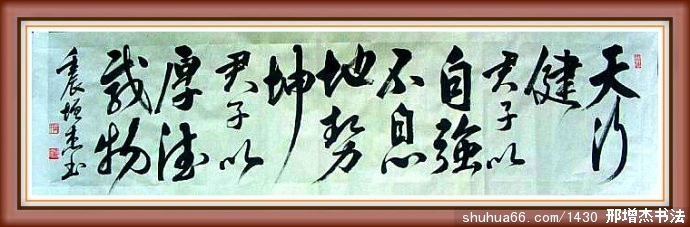 天行
健
君子以
自強
不息
地势
坤
君子以
厚德
载物
壬辰增杰书
shuhua66.com/1430 邢增杰书法